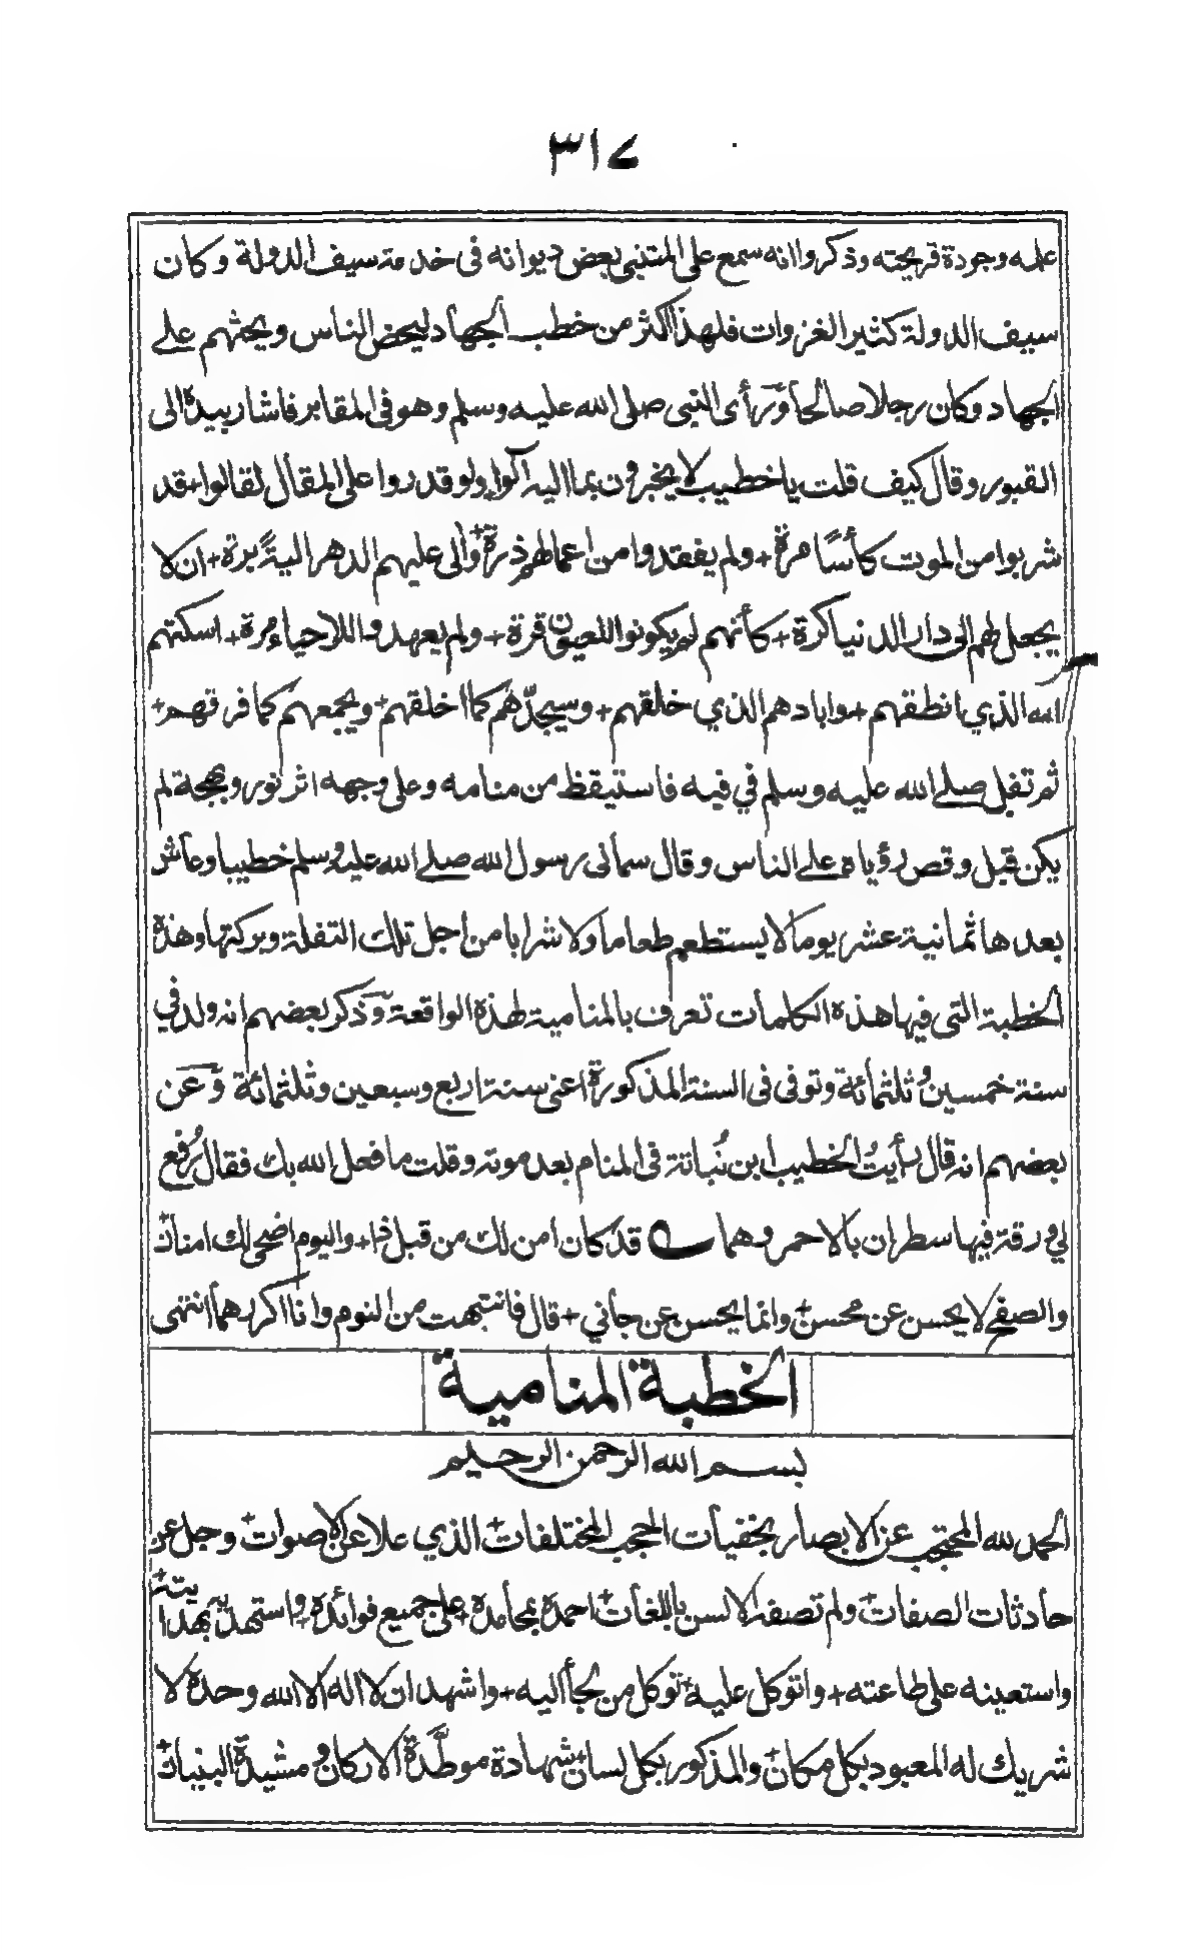 ٣١٧
علمه وجودة قريحته وذكروا انه سمع على المتنبى بعض ديوانه فى خدمة سيف الدولة وكان
سيف الدولة كثير الغزوات فلهذا اكثر من خطب الجهاد ليحض الناس ويحثهم على
الجهاد وكان رجلا صالحا ورأى النبى صلى الله عليه وسلم وهو فى المقابر فاشار بيده الى
القبور وقال كيف قلت يا خطيب لا يخبرون بما اليه آلوا+ ولو قدروا على المقال لقالوا+ قد
شربوا من الموت كأسًا مرة+ ولم يفقدوا من اعمالهم ذرة+ وآلى عليهم الدهر اليةً برة+ ان لا
يجعل لهم الى دار الدنيا كرة+ كأنهم لم يكونوا للعيون قرة+ ولم يعهدوا للاحياء مرة+ اسكتهم
الله الذي انطقهم+ وابادهم الذي خلقهم+ وسيجدّهم كما اخلقهم+ ويجمعهم كما فرقهم+
ثم تفل صلے الله عليه وسلم في فيه فاستيقظ من منامه وعلى وجهه اثر نور وبهجة لم
يكن قبل وقص رؤياه علے الناس وقال سمانى رسول الله صلے الله عليه وسلم خطيبا وعاش
بعدها ثمانية عشر يوما لا يستطعم طعاما ولا شرابا من اجل تلك التفلة وبركتها وهذه
الخطبة التى فيها هذه الكلمات تعرف بالمنامية لهذه الواقعة وذكر بعضهم انه ولد في
سنة خمسين وثلثمائة وتوفى فى السنة المذكورة اعنى سنة اربع وسبعين وثلثمائة وعن
بعضهم انه قال رأيتُ الخطيب ابن نُباتة فى المنام بعد موته وقلت ما فعل الله بك فقال رُفع
لي ورقة فيها سطران بالاحمر وهما قد كان امن لك من قبل ذا+ واليوم اضحى لك امنان
والصفح لا يحسن عن محسن+ وانما يحسن عن جاني+ قال فانتبهت من النوم وانا اكررهما انتهى
الخطبة المنامية
بسم الله الرحمن الرحيم
الحمد لله المحتجب عن الابصار بخفيات الحجب المختلفات+ الذي علا عن الاصوات+ وجل عن
حادثات الصفات+ ولم تصفه الالسن باللغات+ احمده بمحامده+ على جميع فوائده+ واستمده بهدايته+
واستعينه على طاعته+ واتوكل عليه+ توكل من لجأ اليه+ واشهد ان لا اله الا الله وحده لا
شريك له المعبود بكل مكان+ والمذكور بكل لسان+ شهادة موطّدة الاركان ومشيدة البنيان+